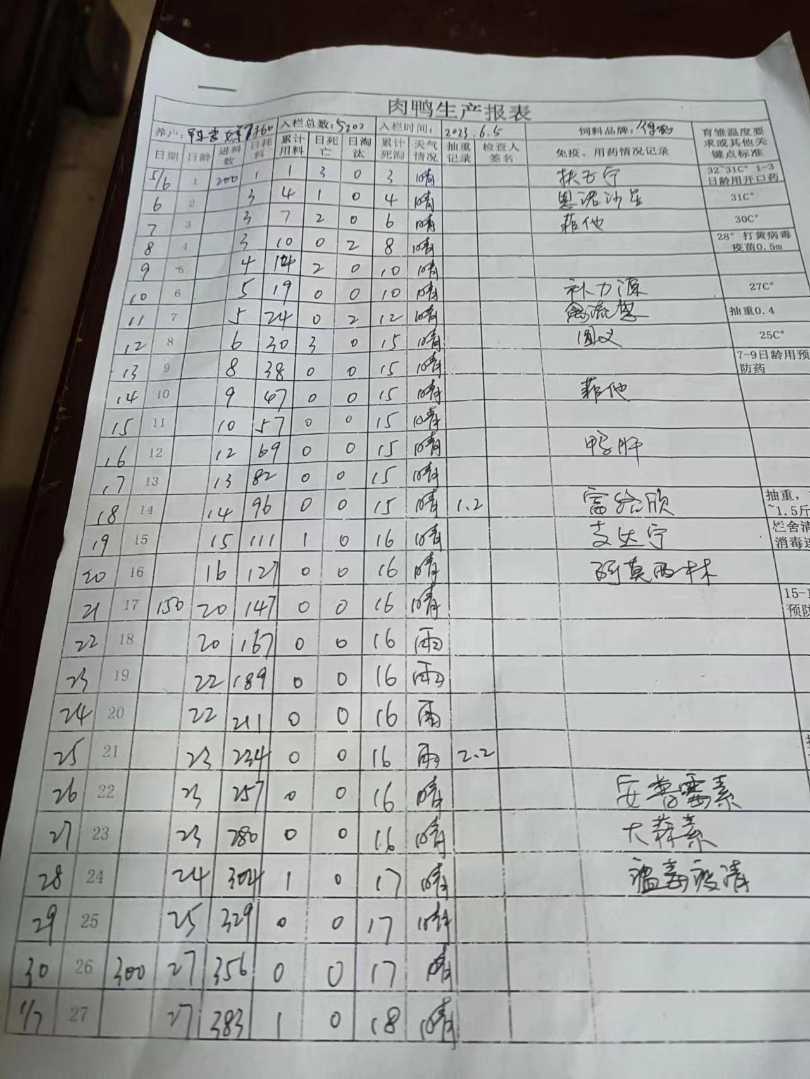 肉鸭生产报表
养户: 入栏总数:5202 入栏时间: 2023.6.5 饲料品牌: 育雏温度要求或其他关键点标准
日期 日龄 进料数 日耗料 累计用料 日死亡 日淘汰 累计死淘 天气情况 抽重记录 检查人签名 免疫、用药情况记录
5/6 1 200 1 1 3 0 3 晴 扶正宁 32~31C° 1-3日龄用开口药
6 2 3 4 1 0 4 晴 恩诺沙星 31C°
7 3 3 7 2 0 6 晴 30C°
8 4 3 10 0 2 8 晴 28° 打黄病毒疫苗0.5m
9 5 4 14 2 0 10 晴
10 6 5 19 0 0 10 晴 补力源 27C°
11 7 5 24 0 2 12 晴 抽重0.4
12 8 6 30 3 0 15 晴 25C°
13 9 8 38 0 0 15 晴 7-9日龄用预防药
14 10 9 47 0 0 15 晴
15 11 10 57 0 0 15 晴
16 12 12 69 0 0 15 晴 鸭肝
17 13 13 82 0 0 15 晴
18 14 14 96 0 0 15 晴 1.2 抽重, ~1.5斤
19 15 15 111 1 0 16 晴 支达宁
20 16 16 127 0 0 16 晴 阿莫西林
21 17 150 20 147 0 0 16 晴
22 18 20 167 0 0 16 雨
23 19 22 189 0 0 16 雨
24 20 22 211 0 0 16 雨
25 21 23 234 0 0 16 雨 2.2
26 22 23 257 0 0 16 晴 安普霉素
27 23 23 280 0 0 16 晴 大蒜素
28 24 24 304 1 0 17 晴
29 25 25 329 0 0 17 晴
30 26 300 27 356 0 0 17 晴
1/7 27 27 383 1 0 18 晴